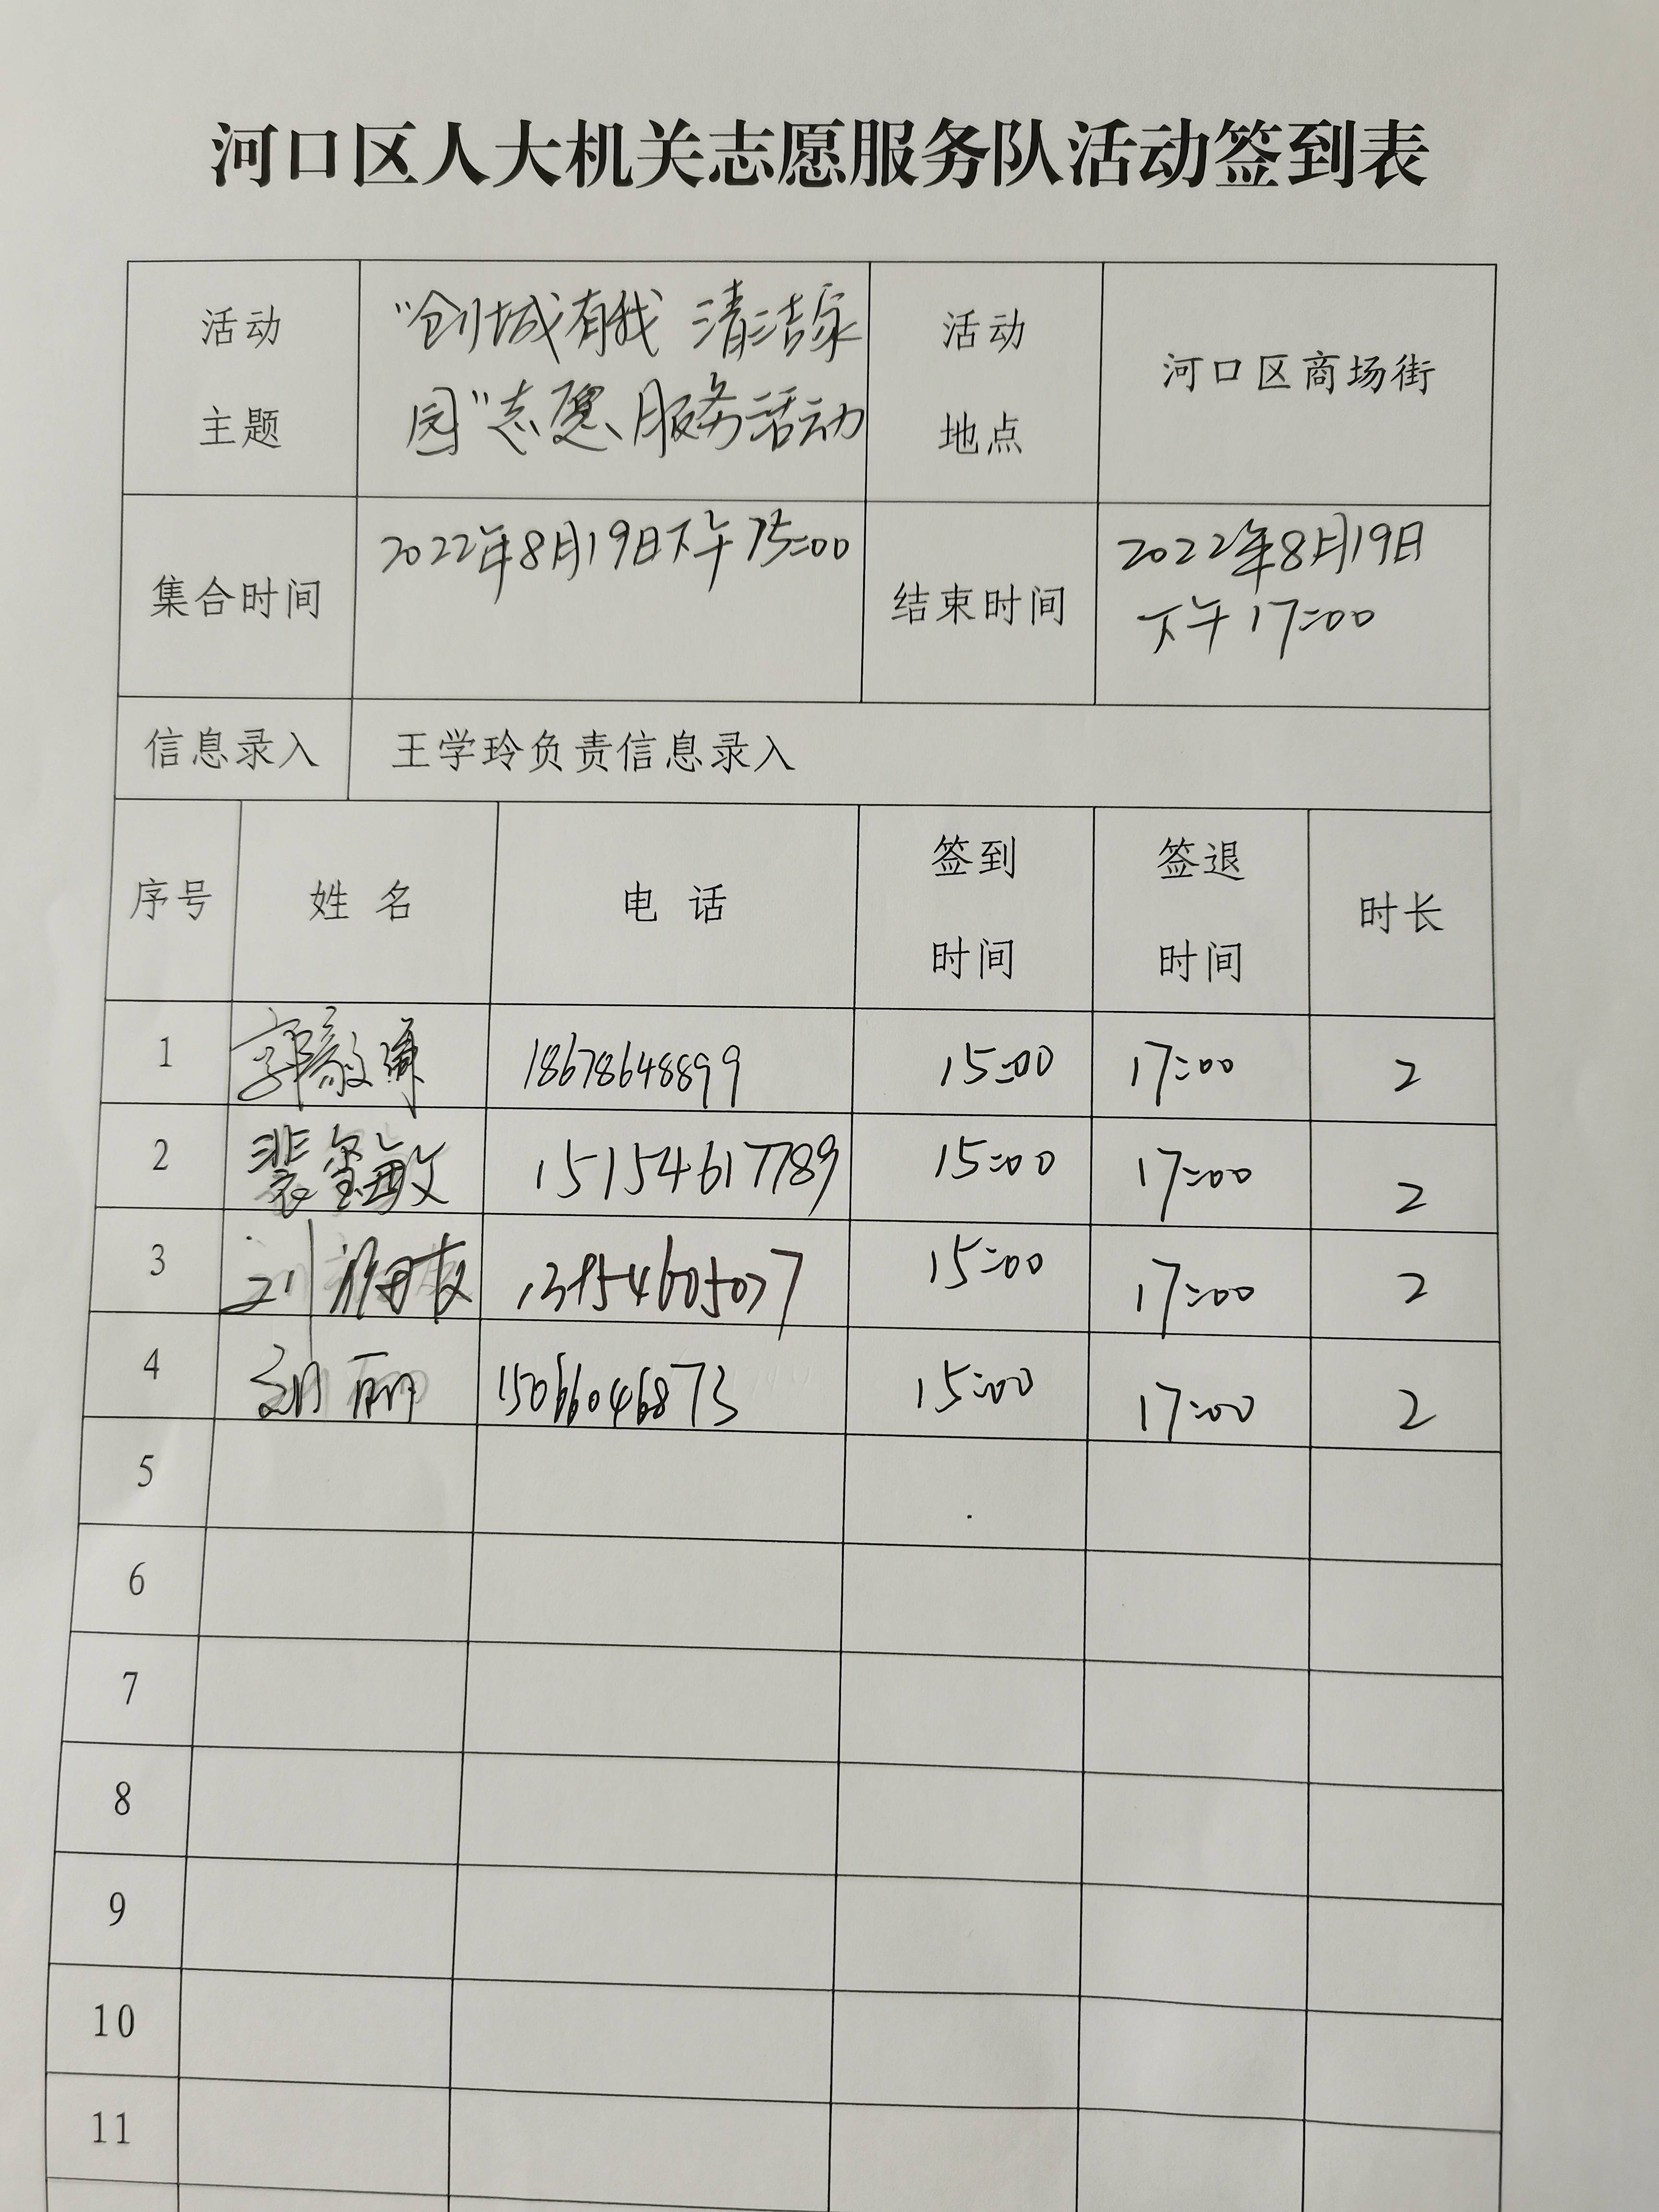 河口区人大机关志愿服务队活动签到表
活动
主题
"创城有我 清洁家
园"志愿服务活动
活动
地点
河口区商场街
集合时间
2022年8月19日下午15:00
结束时间
2022年8月19日
下午17:00
信息录入
王学玲负责信息录入
序号
姓 名
电 话
签到
时间
签退
时间
时长
1
18678648899
15:00
17:00
2
2
裴玺敏
15154617789
15:00
17:00
2
3
15:00
17:00
2
4
刘丽
15066046873
15:00
17:00
2
5
6
7
8
9
10
11